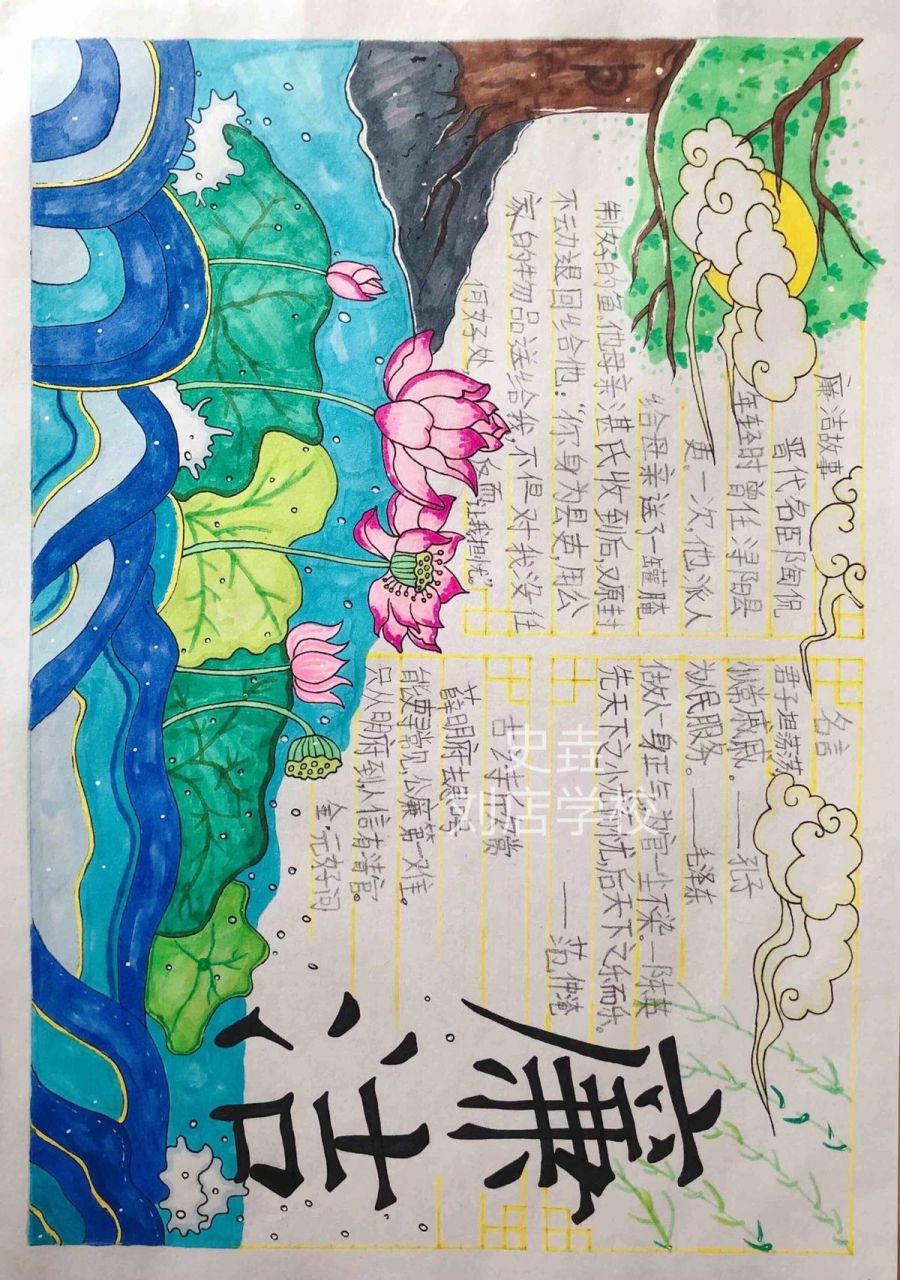 廉洁
廉洁故事
晋代名臣陶侃
年轻时曾任浔阳县
吏。一次,他派人
给母亲送了一罐腌
制好的鱼。他母亲湛氏收到后,又原封
不动退回给他:“你身为县吏,用公
家的物品送给我,不但对我没任
何好处,反而让我担忧”
名言
君子坦荡荡
小人常戚戚。——孔子
为民服务。——毛泽东
做人一身正气为官一尘不染。—陈英
先天下之忧而忧,后天下之乐而乐。
——范仲淹
古诗欣赏
薛明府去思口号
能吏寻常见,公廉第一难。
只从明府到,人信有清官。
金·元好问
史垚
刘店学校